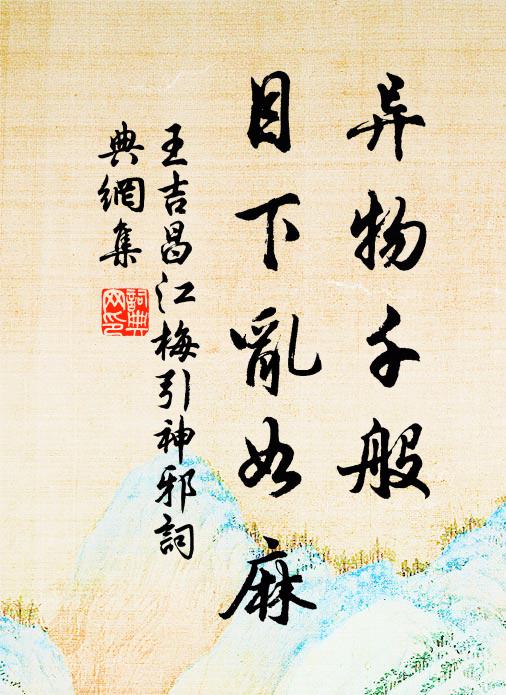 异物千般
目下亂如麻
王吉昌江梅引神邪詞
典網集
詞典網印